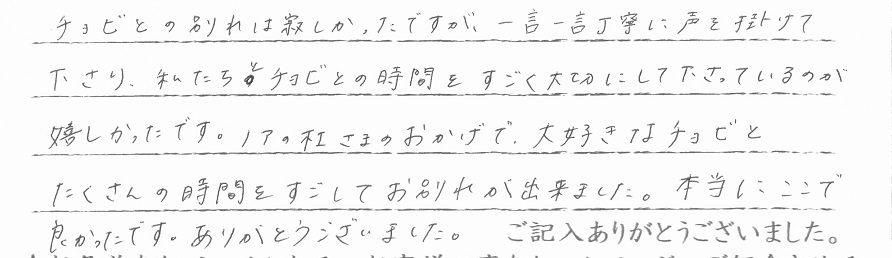 チョビとの別れは寂しかったですが、一言一言丁寧に声を掛けて
下さり、私たちとチョビとの時間をすごく大切にして下さっているのが
嬉しかったです。ノアの杜さまのおかげで、大好きなチョビと
たくさんの時間をすごしてお別れが出来ました。本当にここで
良かったです。ありがとうございました。 ご記入ありがとうございました。